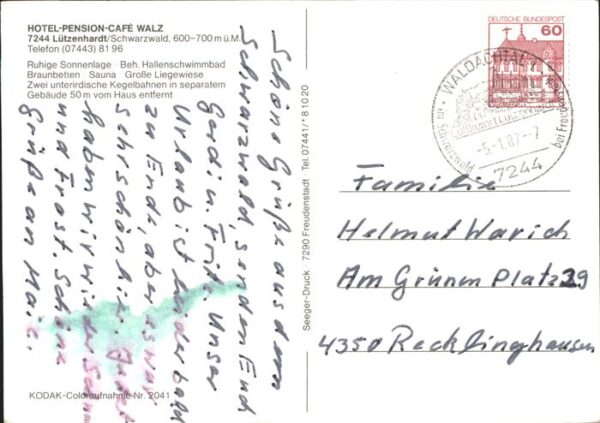 HOTEL-PENSION-CAFÉ WALZ
7244 Lützenhardt/Schwarzwald, 600-700 m ü.M.
Telefon (07443) 81 96
Ruhige Sonnenlage · Beh. Hallenschwimmbad
Braunbetten · Sauna · Große Liegewiese
Zwei unterirdische Kegelbahnen in separatem
Gebäude 50 m vom Haus entfernt
Schöne Grüße aus dem
Schwarzwald, senden Euch
Gerd u.
Unser
Urlaub ist leider bald
zu Ende, aber es war
sehr schön hier.
haben wir wieder Schnee
und Frost. Schöne
Grüße an
KODAK-Coloraufnahme Nr. 2041
Seeger-Druck 7290 Freudenstadt Tel. 07441/* 8 10 20
DEUTSCHE BUNDESPOST
60
WALDACHTAL 1
bei Freudenstadt
-5.-1.87.-7
7244
Familie
Helmut Warich
Am Grünen Platz 29
4350 Recklinghausen